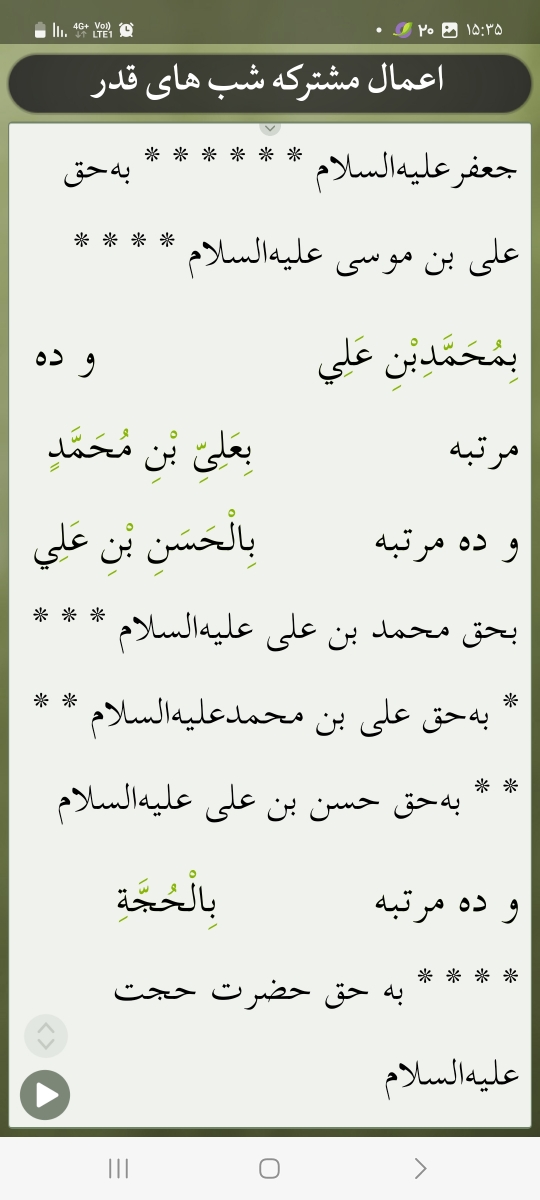 4G+ Vo)) LTE1 ۲۰ ۱۵:۳۵
اعمال مشترکه شب های قدر
جعفرعلیه‌السلام * * * * * * به‌حق
علی بن موسی علیه‌السلام * * * *
بِمُحَمَّدِبْنِ عَلِي و ده
مرتبه بِعَلِيِّ بْنِ مُحَمَّدٍ
و ده مرتبه بِالْحَسَنِ بْنِ عَلِي
بحق محمد بن علی علیه‌السلام * * *
* به‌حق علی بن محمدعلیه‌السلام * *
* * به‌حق حسن بن علی علیه‌السلام
و ده مرتبه بِالْحُجَّةِ
* * * * به حق حضرت حجت
علیه‌السلام